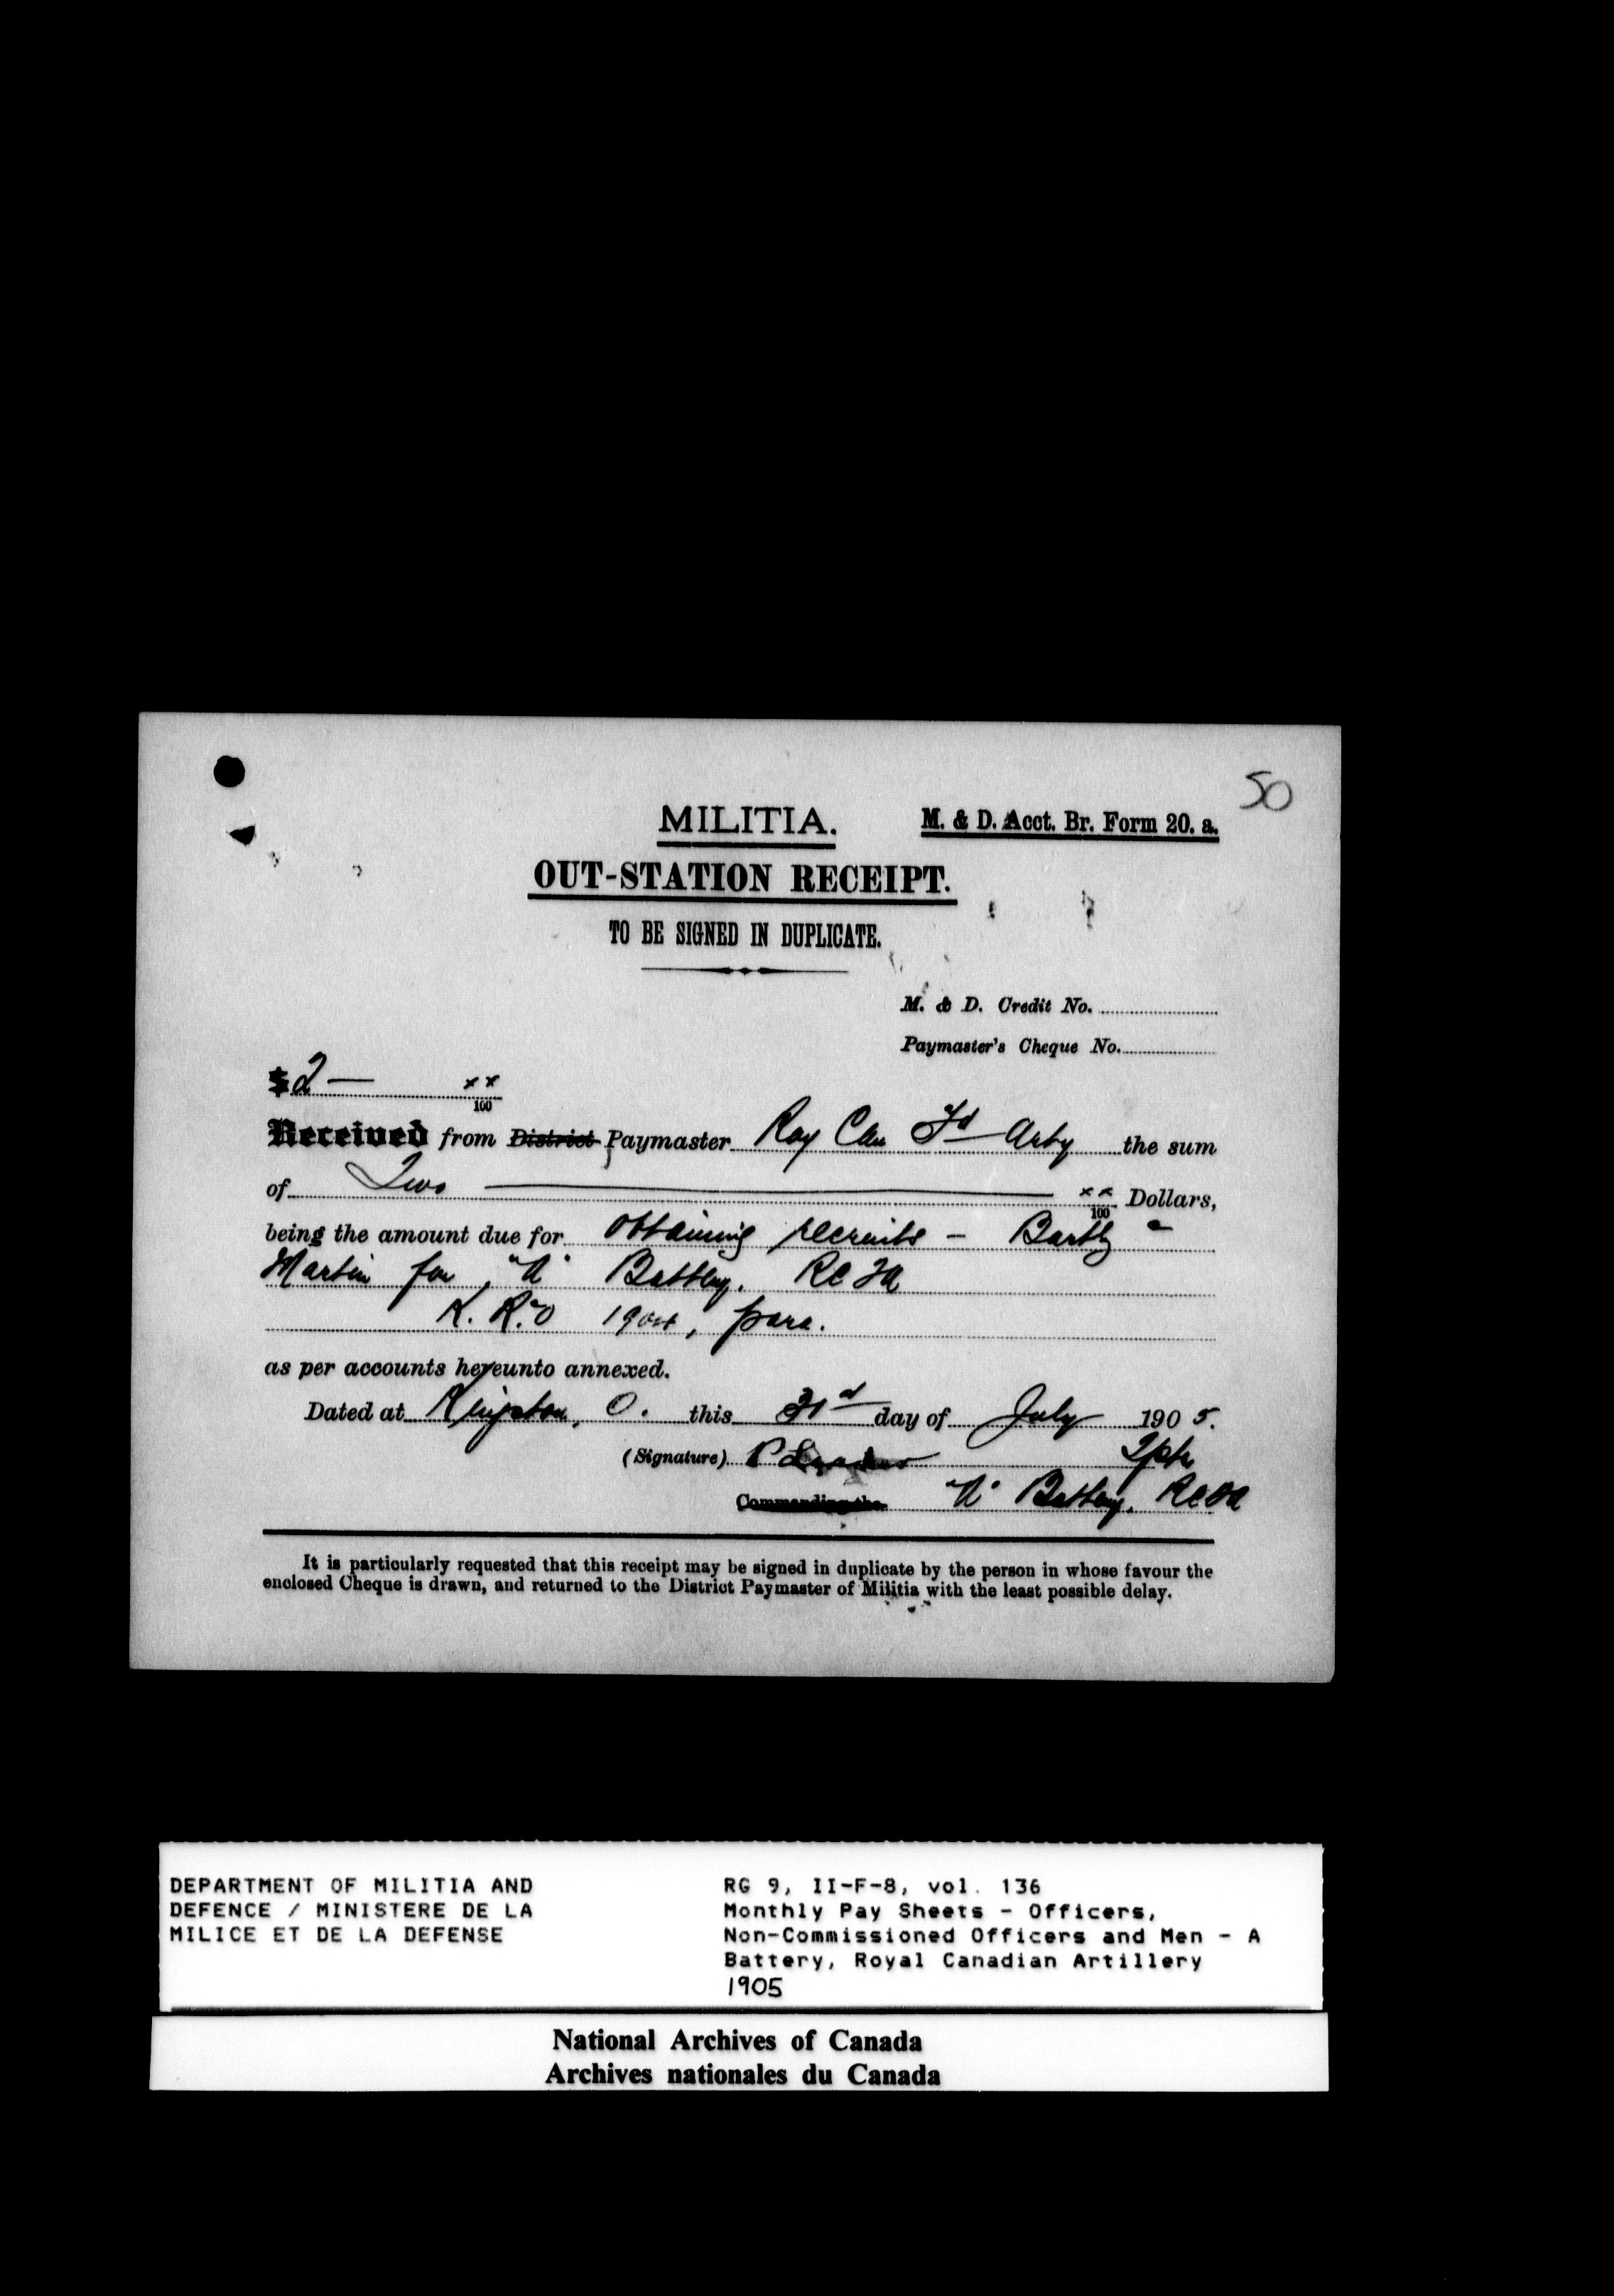 50
MILITIA. M. & D. Acct. Br. Form 20. a.
OUT-STATION RECEIPT.
TO BE SIGNED IN DUPLICATE.
M. & D. Credit No.
Paymaster's Cheque No.
$2 — xx/100
Received from District Paymaster Roy Can Fd Arty the sum
of Two xx/100 Dollars,
being the amount due for obtaining recruits -
Martin for "A" Battery. RCFA
K. R. & O 1904, para.
as per accounts hereunto annexed.
Dated at Kingston, O. this 31st day of July 1905.
(Signature) P Tptr
Commanding the "A" Battery, RCFA
It is particularly requested that this receipt may be signed in duplicate by the person in whose favour the
enclosed Cheque is drawn, and returned to the District Paymaster of Militia with the least possible delay.
DEPARTMENT OF MILITIA AND
DEFENCE / MINISTERE DE LA
MILICE ET DE LA DEFENSE
RG 9, II-F-8, vol. 136
Monthly Pay Sheets - Officers,
Non-Commissioned Officers and Men - A
Battery, Royal Canadian Artillery
1905
National Archives of Canada
Archives nationales du Canada